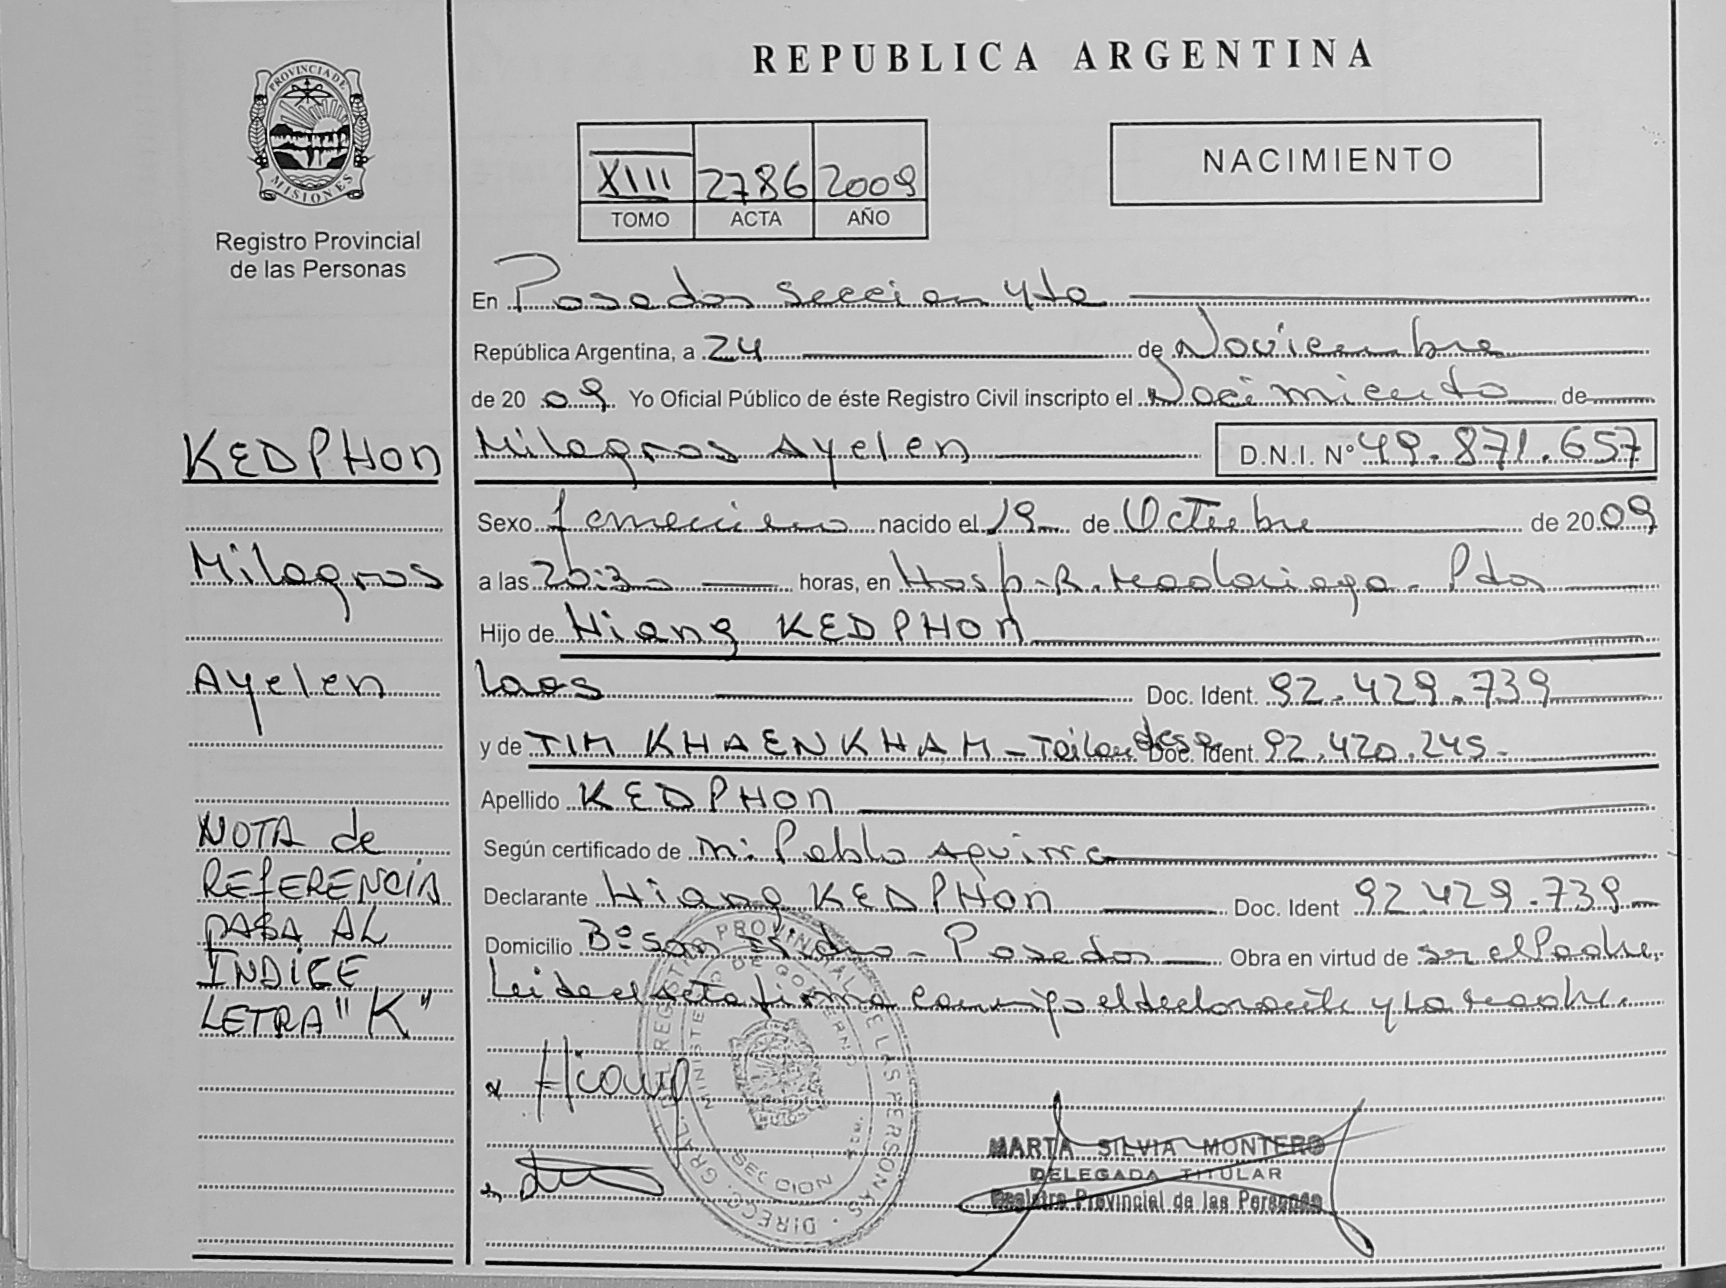 PROVINCIA DE MISIONES
Registro Provincial
de las Personas
REPUBLICA ARGENTINA
XIII 2786 2009
TOMO ACTA AÑO
NACIMIENTO
En Posadas Seccion 4ta
República Argentina, a 24 de Noviembre
de 2009 Yo Oficial Público de éste Registro Civil inscripto el Nacimiento de
KEDPHON Milagros Ayelen D.N.I. Nº 49.871.657
Sexo femenino nacido el 19 de Octubre de 2009
Milagros a las horas, en Hosp. R. Madariaga - Pdas
Hijo de Hiang KEDPHON
Ayelen Laos Doc. Ident. 92.429.739
y de TIM KHAENKHAM - Tailandesa Doc. Ident. 92.420.245-
Apellido KEDPHON
NOTA de
REFERENCIA
PASA AL
INDICE
LETRA "K"
Según certificado de Pablo Aguirre
Declarante Hiang KEDPHON Doc. Ident 92.429.739
Domicilio Bº San Isidro - Posadas Obra en virtud de ser el Padre.
Leida el acta firma conmigo el declarante y la madre.
Hiang
DIRECC. GRAL. REGISTRO PROVINCIAL DE LAS PERSONAS
MINISTERIO DE GOBIERNO
SECCION
MARTA SILVIA MONTERO
DELEGADA TITULAR
Registro Provincial de las Personas